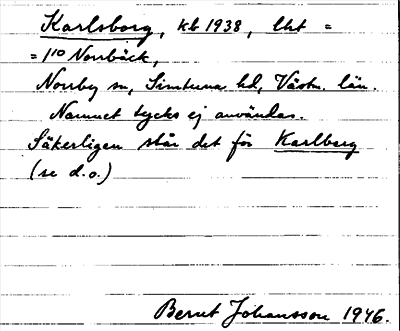 Karlsborg, kb 1938, lht =
= 1/10 Norrbäck,
Norrby sn, Simtuna hd, Västm. län.
Namnet tycks ej användas.
Säkerligen står det för Karlberg
(se d.o.)
Bernt Johansson 1946.